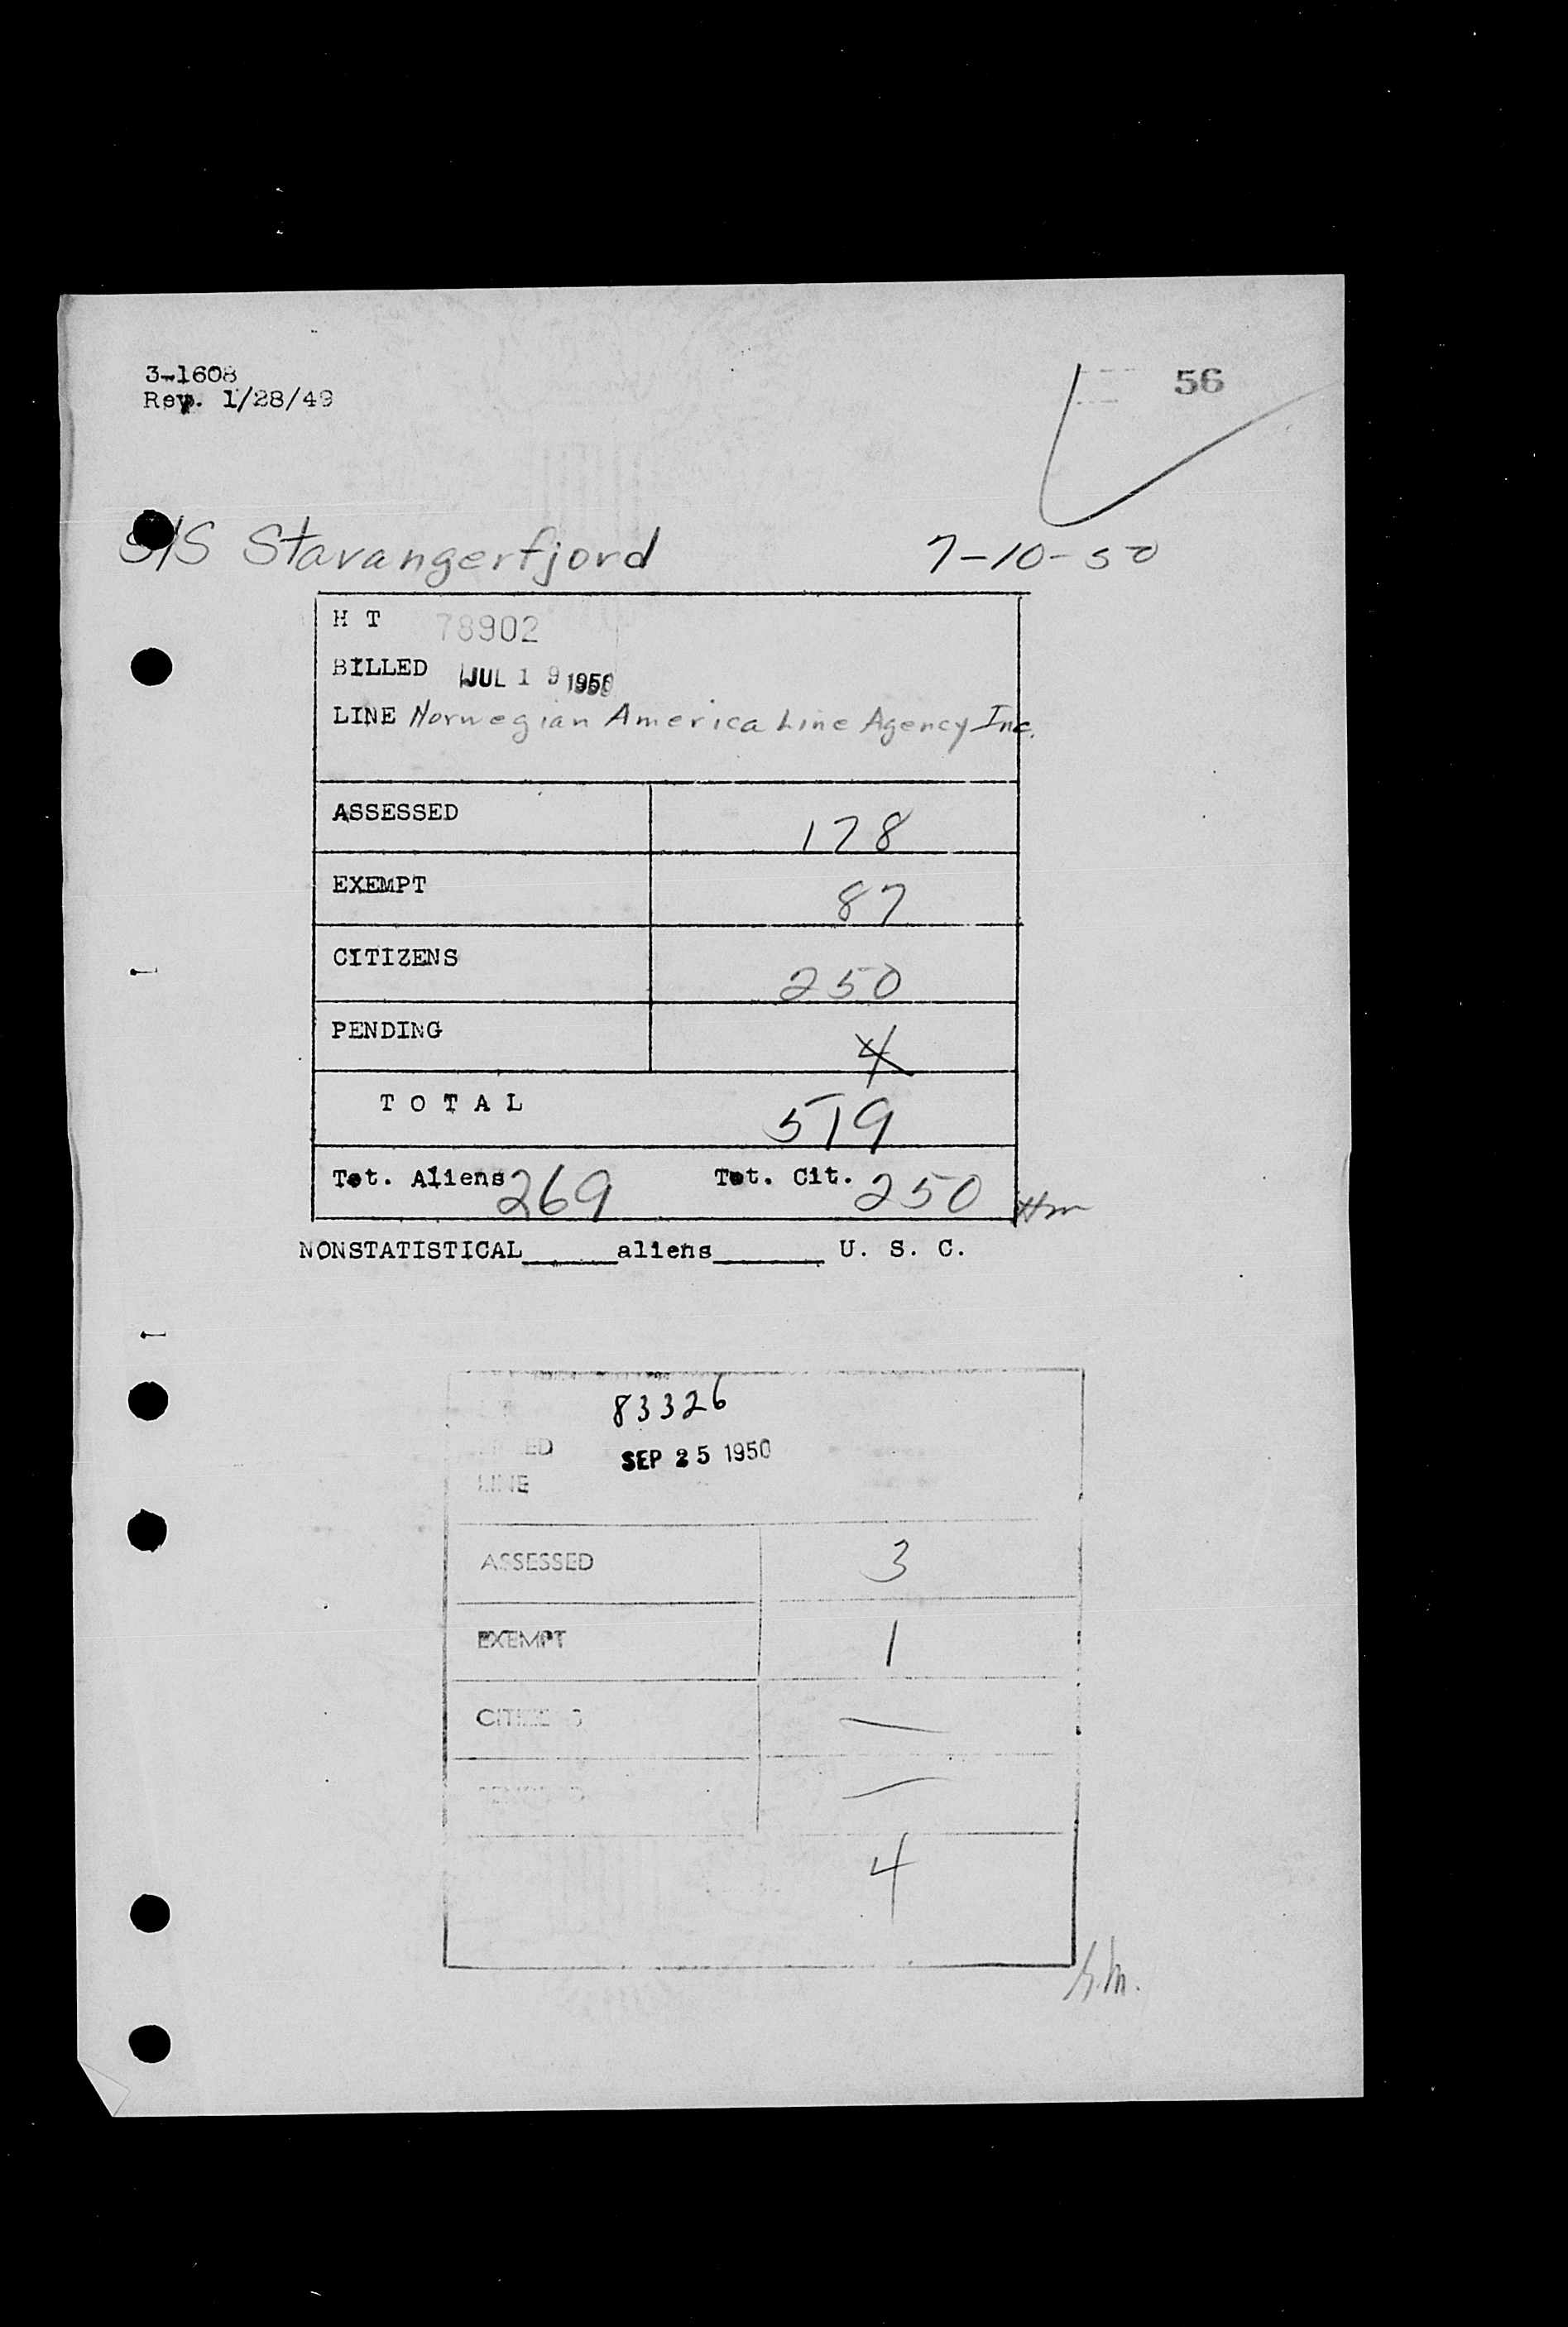 3-1608
Rev. 1/28/49
56
S/S Stavangerfjord 7-10-50
H T 78902
BILLED JUL 19 1950
LINE Norwegian America Line Agency Inc.
ASSESSED 178
EXEMPT 87
CITIZENS 250
PENDING 4
T O T A L 519
Tot. Aliens 269 Tot. Cit. 250
NONSTATISTICAL aliens U. S. C.
83326
ED SEP 25 1950
LINE
ASSESSED 3
EXEMPT 1
CITIZENS —
—
4